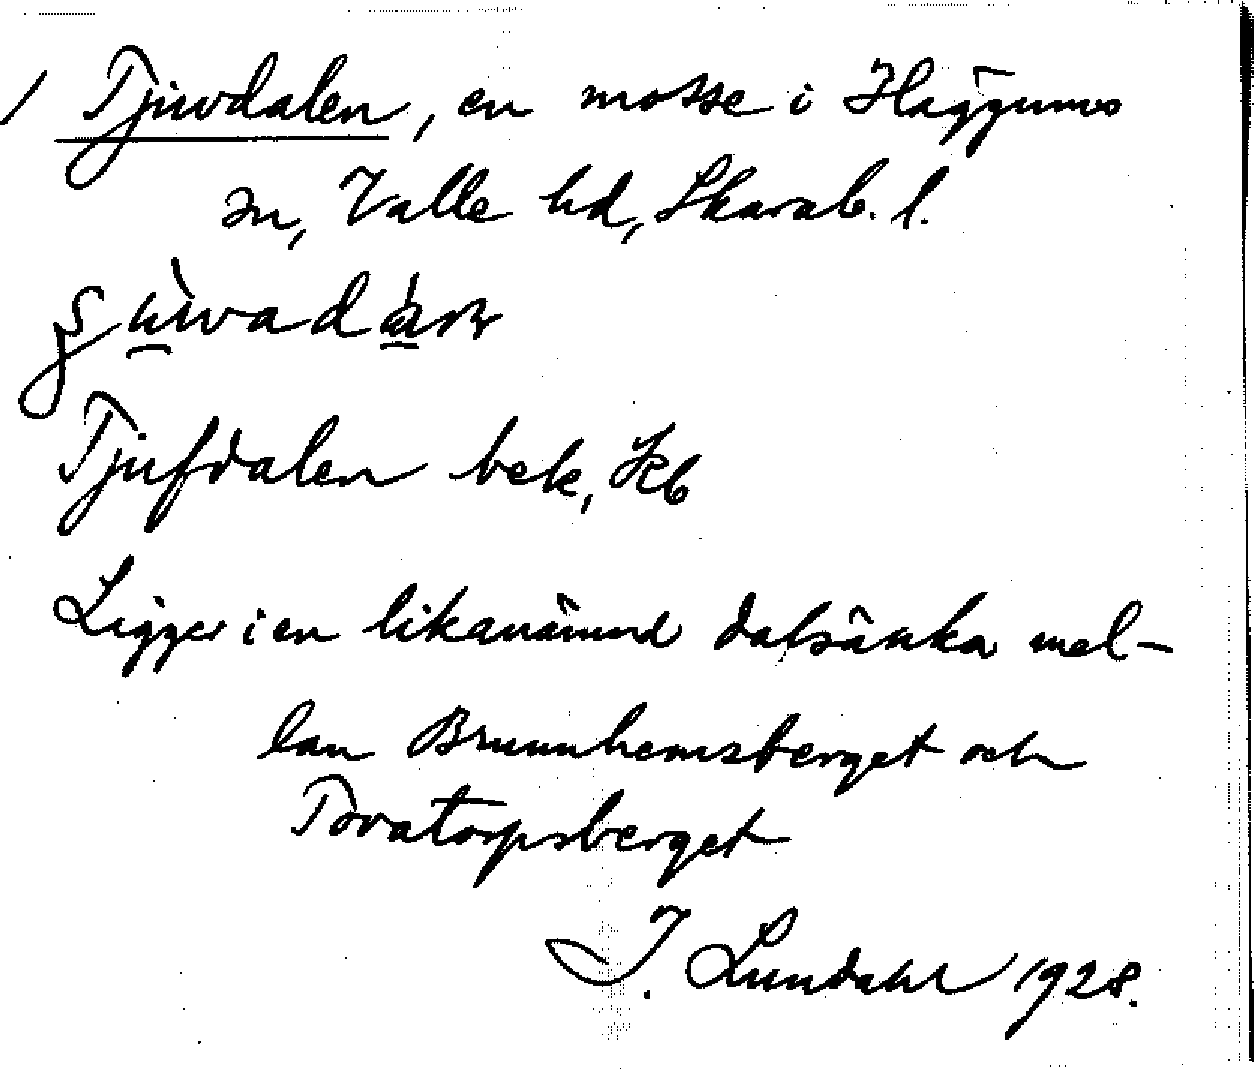 / Tjuvdalen, en mosse i Häggums
sn, Valle hd, Skarab. l.
Tjufdalen bek, Kb
Ligger i en likanämnd dalsänka mel-
lan Brunnhemsberget och
Tovatorpsberget
I. Lundahl 1928.